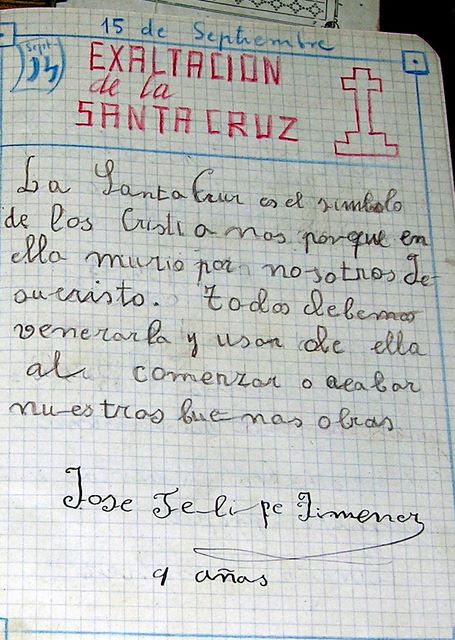 15 de Septiembre
Sept
14
EXALTACION
de la
SANTA CRUZ
La Santa Cruz es el simbolo
de los Cristianos porque en
ella murio por nosotros Je-
sucristo. todos debemos
venerarla y usar de ella
al comenzar o acabar
nuestras buenas obras
Jose Felipe Jimenez
9 años